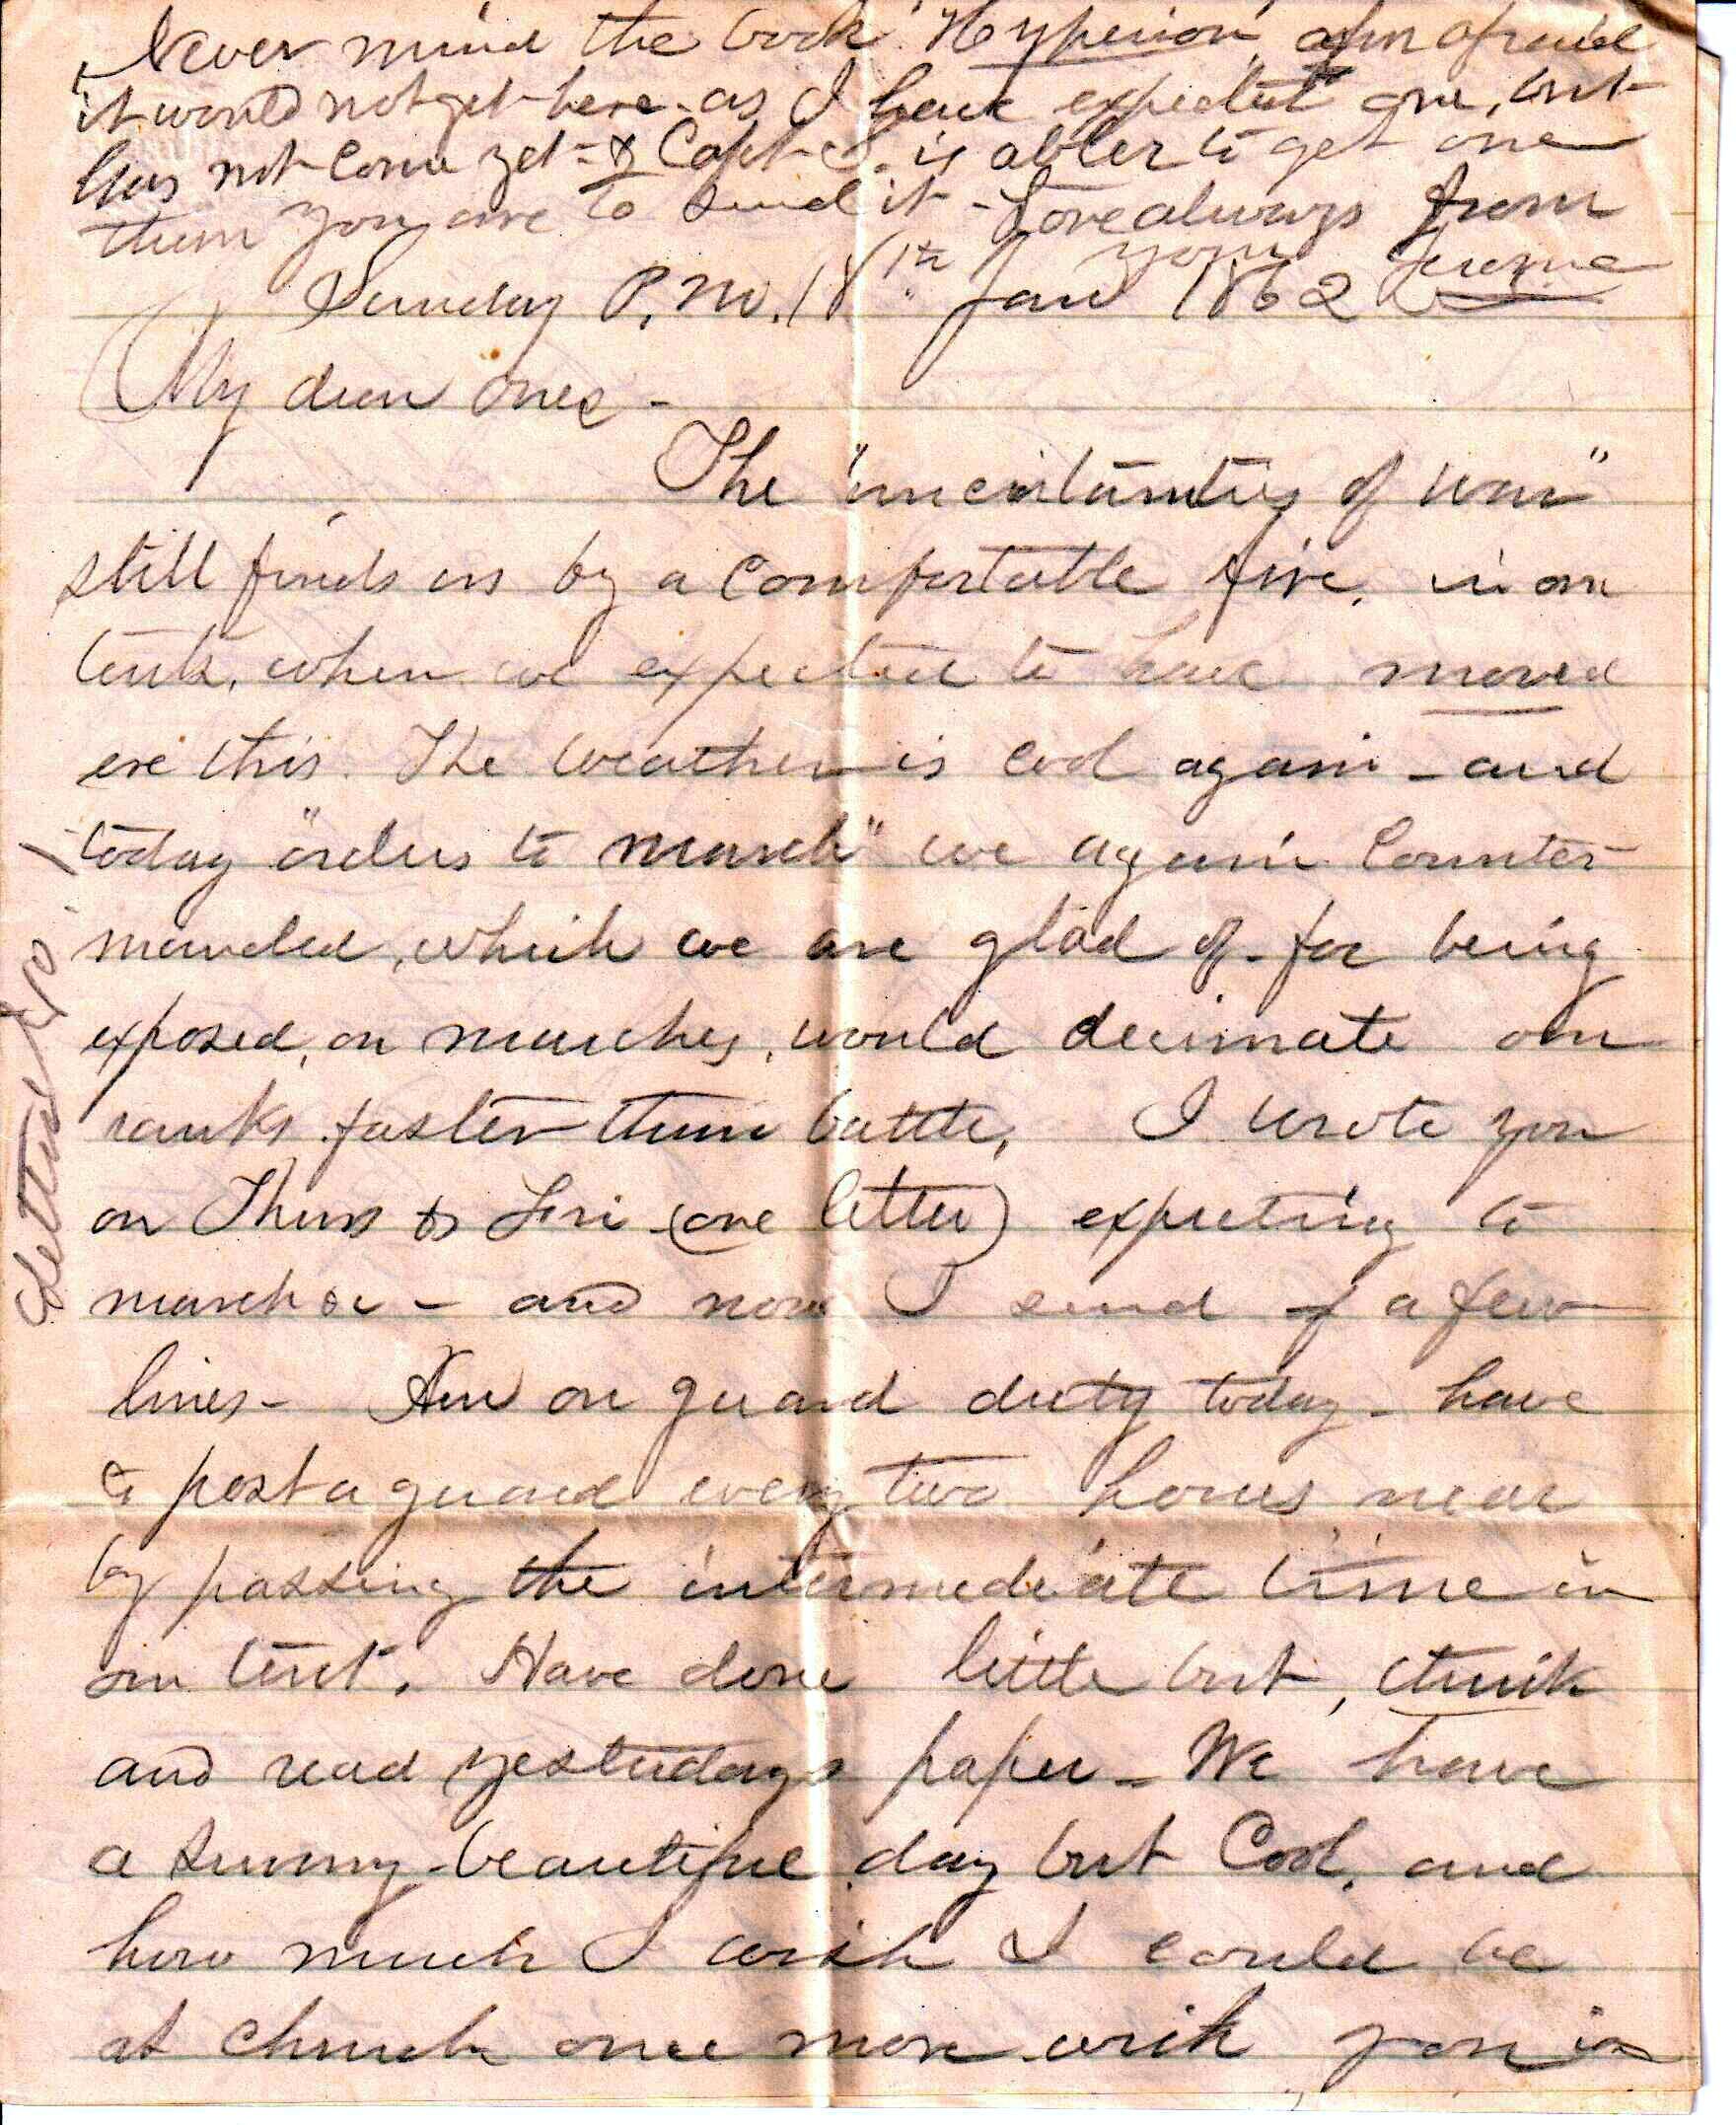 Never mind the book "Hyperion" afm afraid
it would not get here - as I have expected one, but
has not come yet - & Capt C. is abler to get one
than you are to send it - Love always from
your Jerome
Sunday P.M. 18th Jan 1862
My dear ones -
The "uncertainties of war"
still finds us by a comfortable fire, in our
tents, when we expected to have moved
ere this. The weather is cool again - and
today "orders to march" we again counter
manded, which we are glad of - for being
exposed, on marches, would decimate our
ranks faster than battle, I wrote you
on Thurs & Fri - (one letter) expecting to
march &c - and now I send of a few
lines - Am on guard duty today - have
to post a guard every two hours near
by passing the intermediate time in
our tent. Have done little but, think
and read yesterdays paper - We have
a sunny - beautiful day but Cool, and
how much I wish I could be
at church once more with you in
Letter No. 1